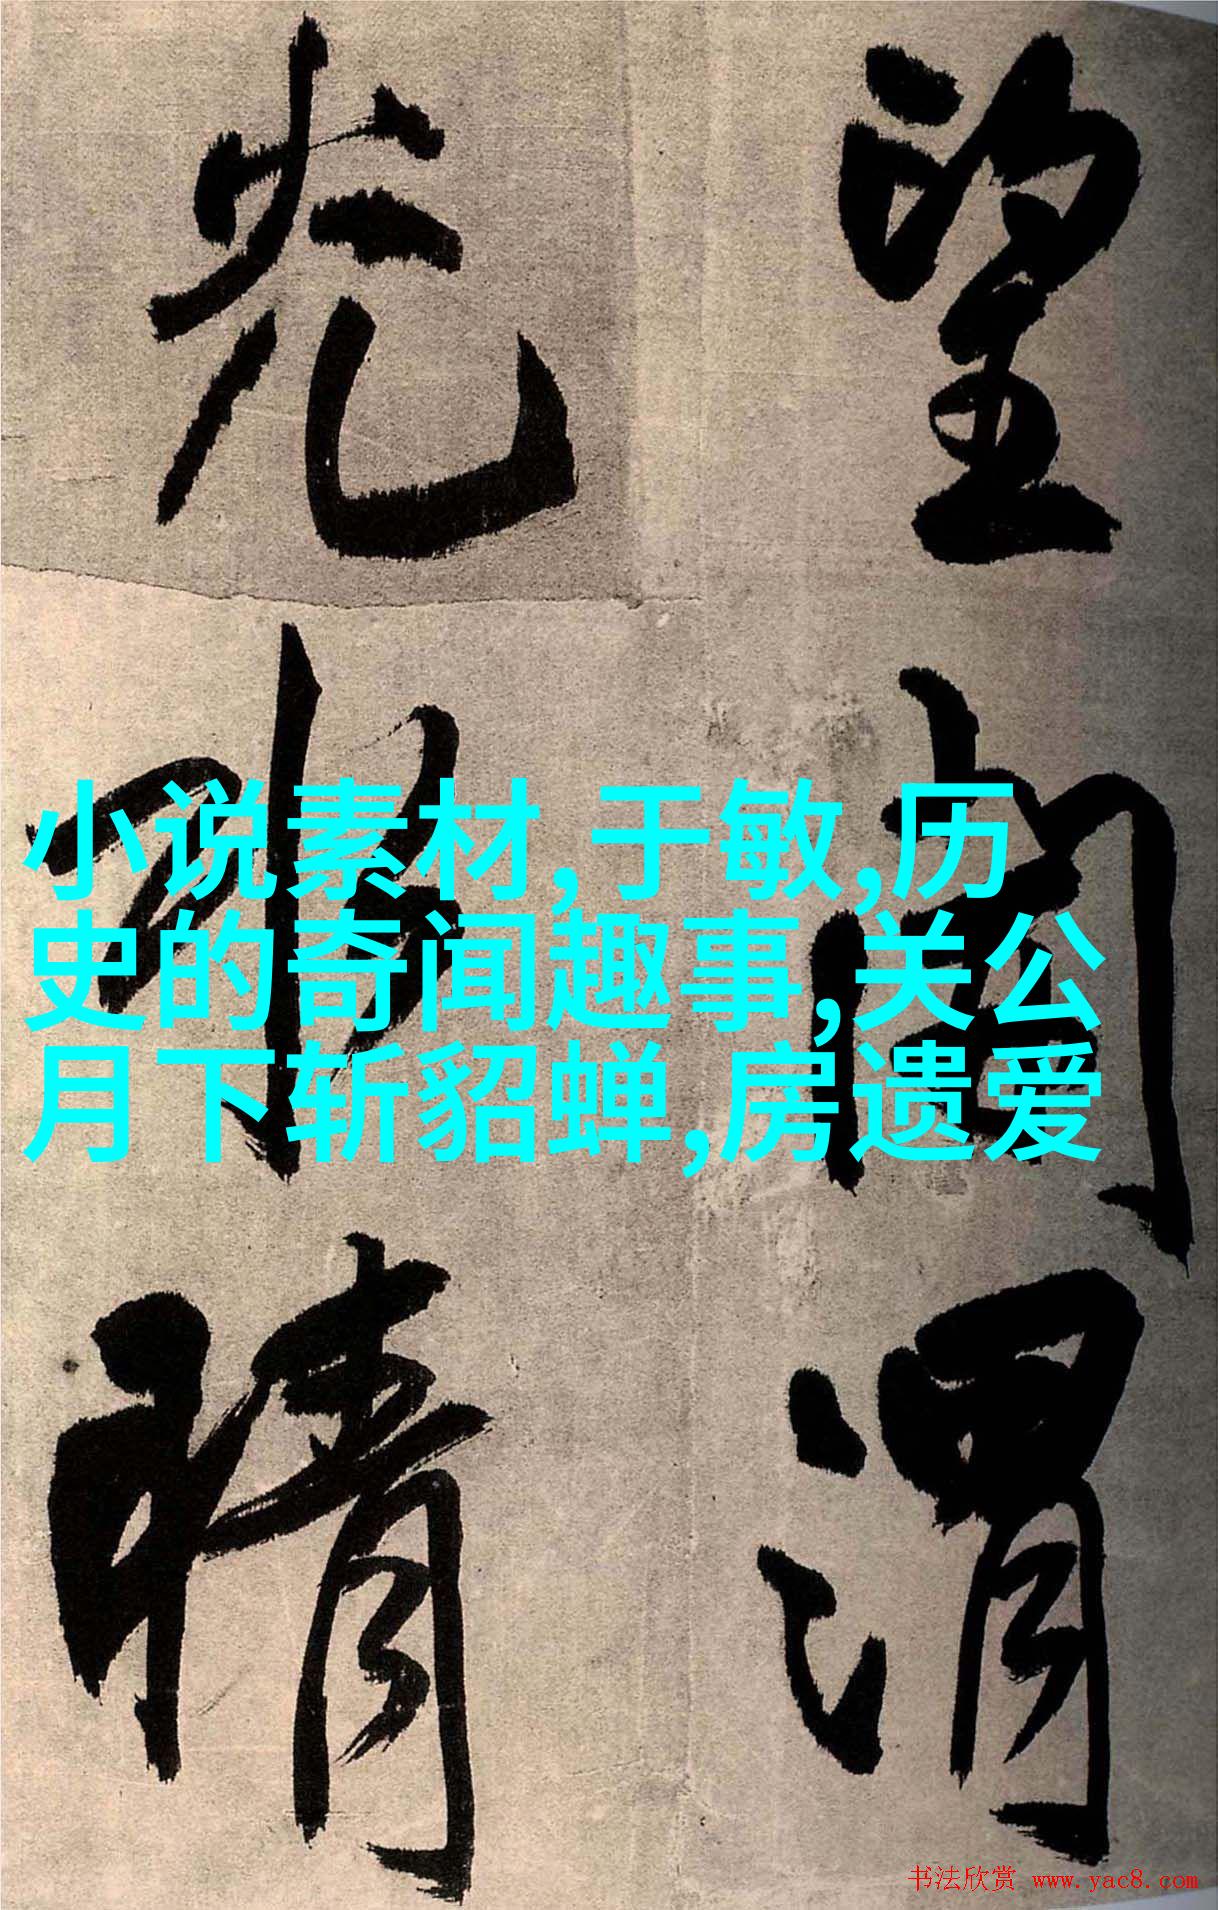 望 渭
光 晴
小说素材,于敏,历
史的奇闻趣事,关公
月下斩貂蝉,房遗爱
书法欣赏 www.yac8.com